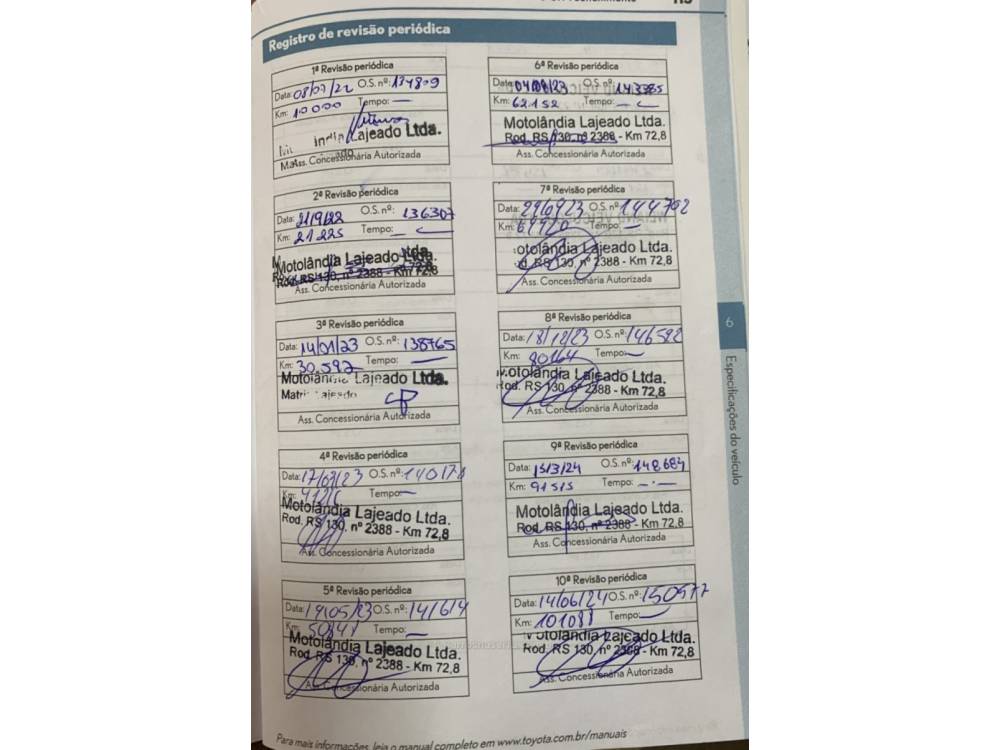 Registro de revisão periódica
1ª Revisão periódica
Data: 08/07/22 O.S. nº: 134809
Km: 10000 Tempo: —
Lajeado Ltda.
Ass. Concessionária Autorizada
2ª Revisão periódica
Data: 21/9/22 O.S. nº: 136307
Km: 21225 Tempo: —
Motolândia Lajeado Ltda.
Rod. RS 130, nº 2388 - Km 72,8
Ass. Concessionária Autorizada
3ª Revisão periódica
Data: 14/01/23 O.S. nº: 138765
Km: 30.592 Tempo: —
Motolândia Lajeado Ltda.
Matriz Lajeado
Ass. Concessionária Autorizada
4ª Revisão periódica
Data: 17/03/23 O.S. nº:
Km: Tempo: —
Motolândia Lajeado Ltda.
Rod. RS 130, nº 2388 - Km 72,8
Ass. Concessionária Autorizada
5ª Revisão periódica
Data: 19/05/23 O.S. nº: 141614
Km: Tempo: —
Motolândia Lajeado Ltda.
Rod. RS 130, nº 2388 - Km 72,8
Ass. Concessionária Autorizada
6ª Revisão periódica
Data: O.S. nº: 143385
Km: 62152 Tempo: —
Motolândia Lajeado Ltda.
Rod. RS 130, nº 2388 - Km 72,8
Ass. Concessionária Autorizada
7ª Revisão periódica
Data: 29/09/23 O.S. nº: 144702
Km: 69920 Tempo: —
otolândia Lajeado Ltda.
d. RS 130, nº 2388 - Km 72,8
Ass. Concessionária Autorizada
8ª Revisão periódica
Data: 18/12/23 O.S. nº: 146582
Km: 80164 Tempo: —
Motolândia Lajeado Ltda.
Rod. RS 130, nº 2388 - Km 72,8
Ass. Concessionária Autorizada
9ª Revisão periódica
Data: 15/3/24 O.S. nº: 148684
Km: 91515 Tempo: —
Motolândia Lajeado Ltda.
Rod. RS 130, nº 2388 - Km 72,8
Ass. Concessionária Autorizada
10ª Revisão periódica
Data: 14/06/24 O.S. nº: 150577
Km: 101088 Tempo: —
Motolândia Lajeado Ltda.
Rod. RS 130, nº 2388 - Km 72,8
Ass. Concessionária Autorizada
6
Especificações do veículo
Para mais informações, leia o manual completo em www.toyota.com.br/manuais